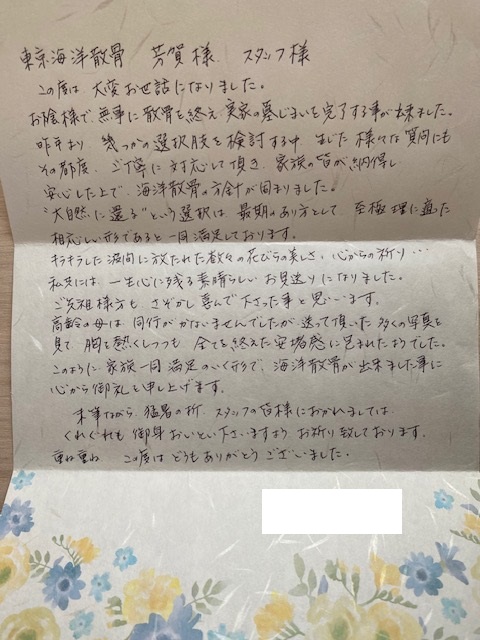 東京海洋散骨 芳賀様 スタッフ様
この度は 大変お世話になりました。
お陰様で、無事に散骨を終え、実家の墓じまいを完了する事が出来ました。
昨年より 幾つかの選択肢を検討する中、生じた様々な質問にも
その都度、ご丁寧に対応して頂き、家族の皆が納得し
安心した上で、海洋散骨の方針が固まりました。
"大自然に還る"という選択は、最期のあり方として、至極理に適った
相応しい形であると一同満足しております。
キラキラした波間に放たれた数々の花びらの美しさ、心からの祈り…
私共には 一生心に残る素晴らしいお見送りになりました。
ご先祖様方も さぞかし喜んで下さった事と思います。
高齢の母は 同行がかないませんでしたが 送って頂いた多くの写真を
見て 胸を熱くしつつも 全てを終えた安堵感に包まれたようでした。
このように、家族一同満足のいく形で、海洋散骨が出来ました事に
心から御礼を申し上げます。
末筆ながら、猛暑の折、スタッフの皆様におかれましては、
くれぐれも 御身おいとい下さいますよう お祈り致しております。
重ね重ね この度は どうもありがとうございました。